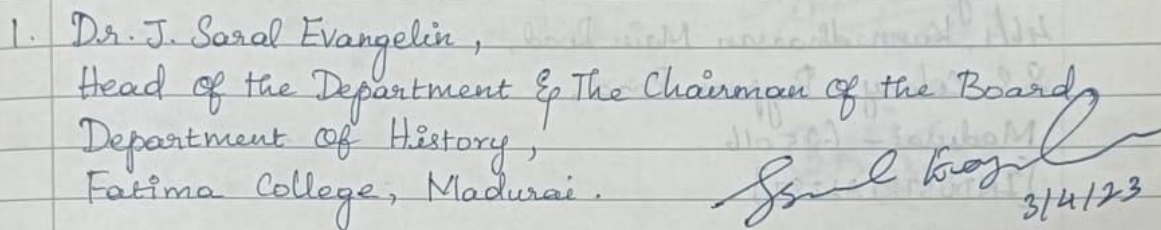 1. Dr. J. Saral Evangelin,
Head of the Department & The Chairman of the Board,
Department of History,
Fatima College, Madurai.
3/4/23